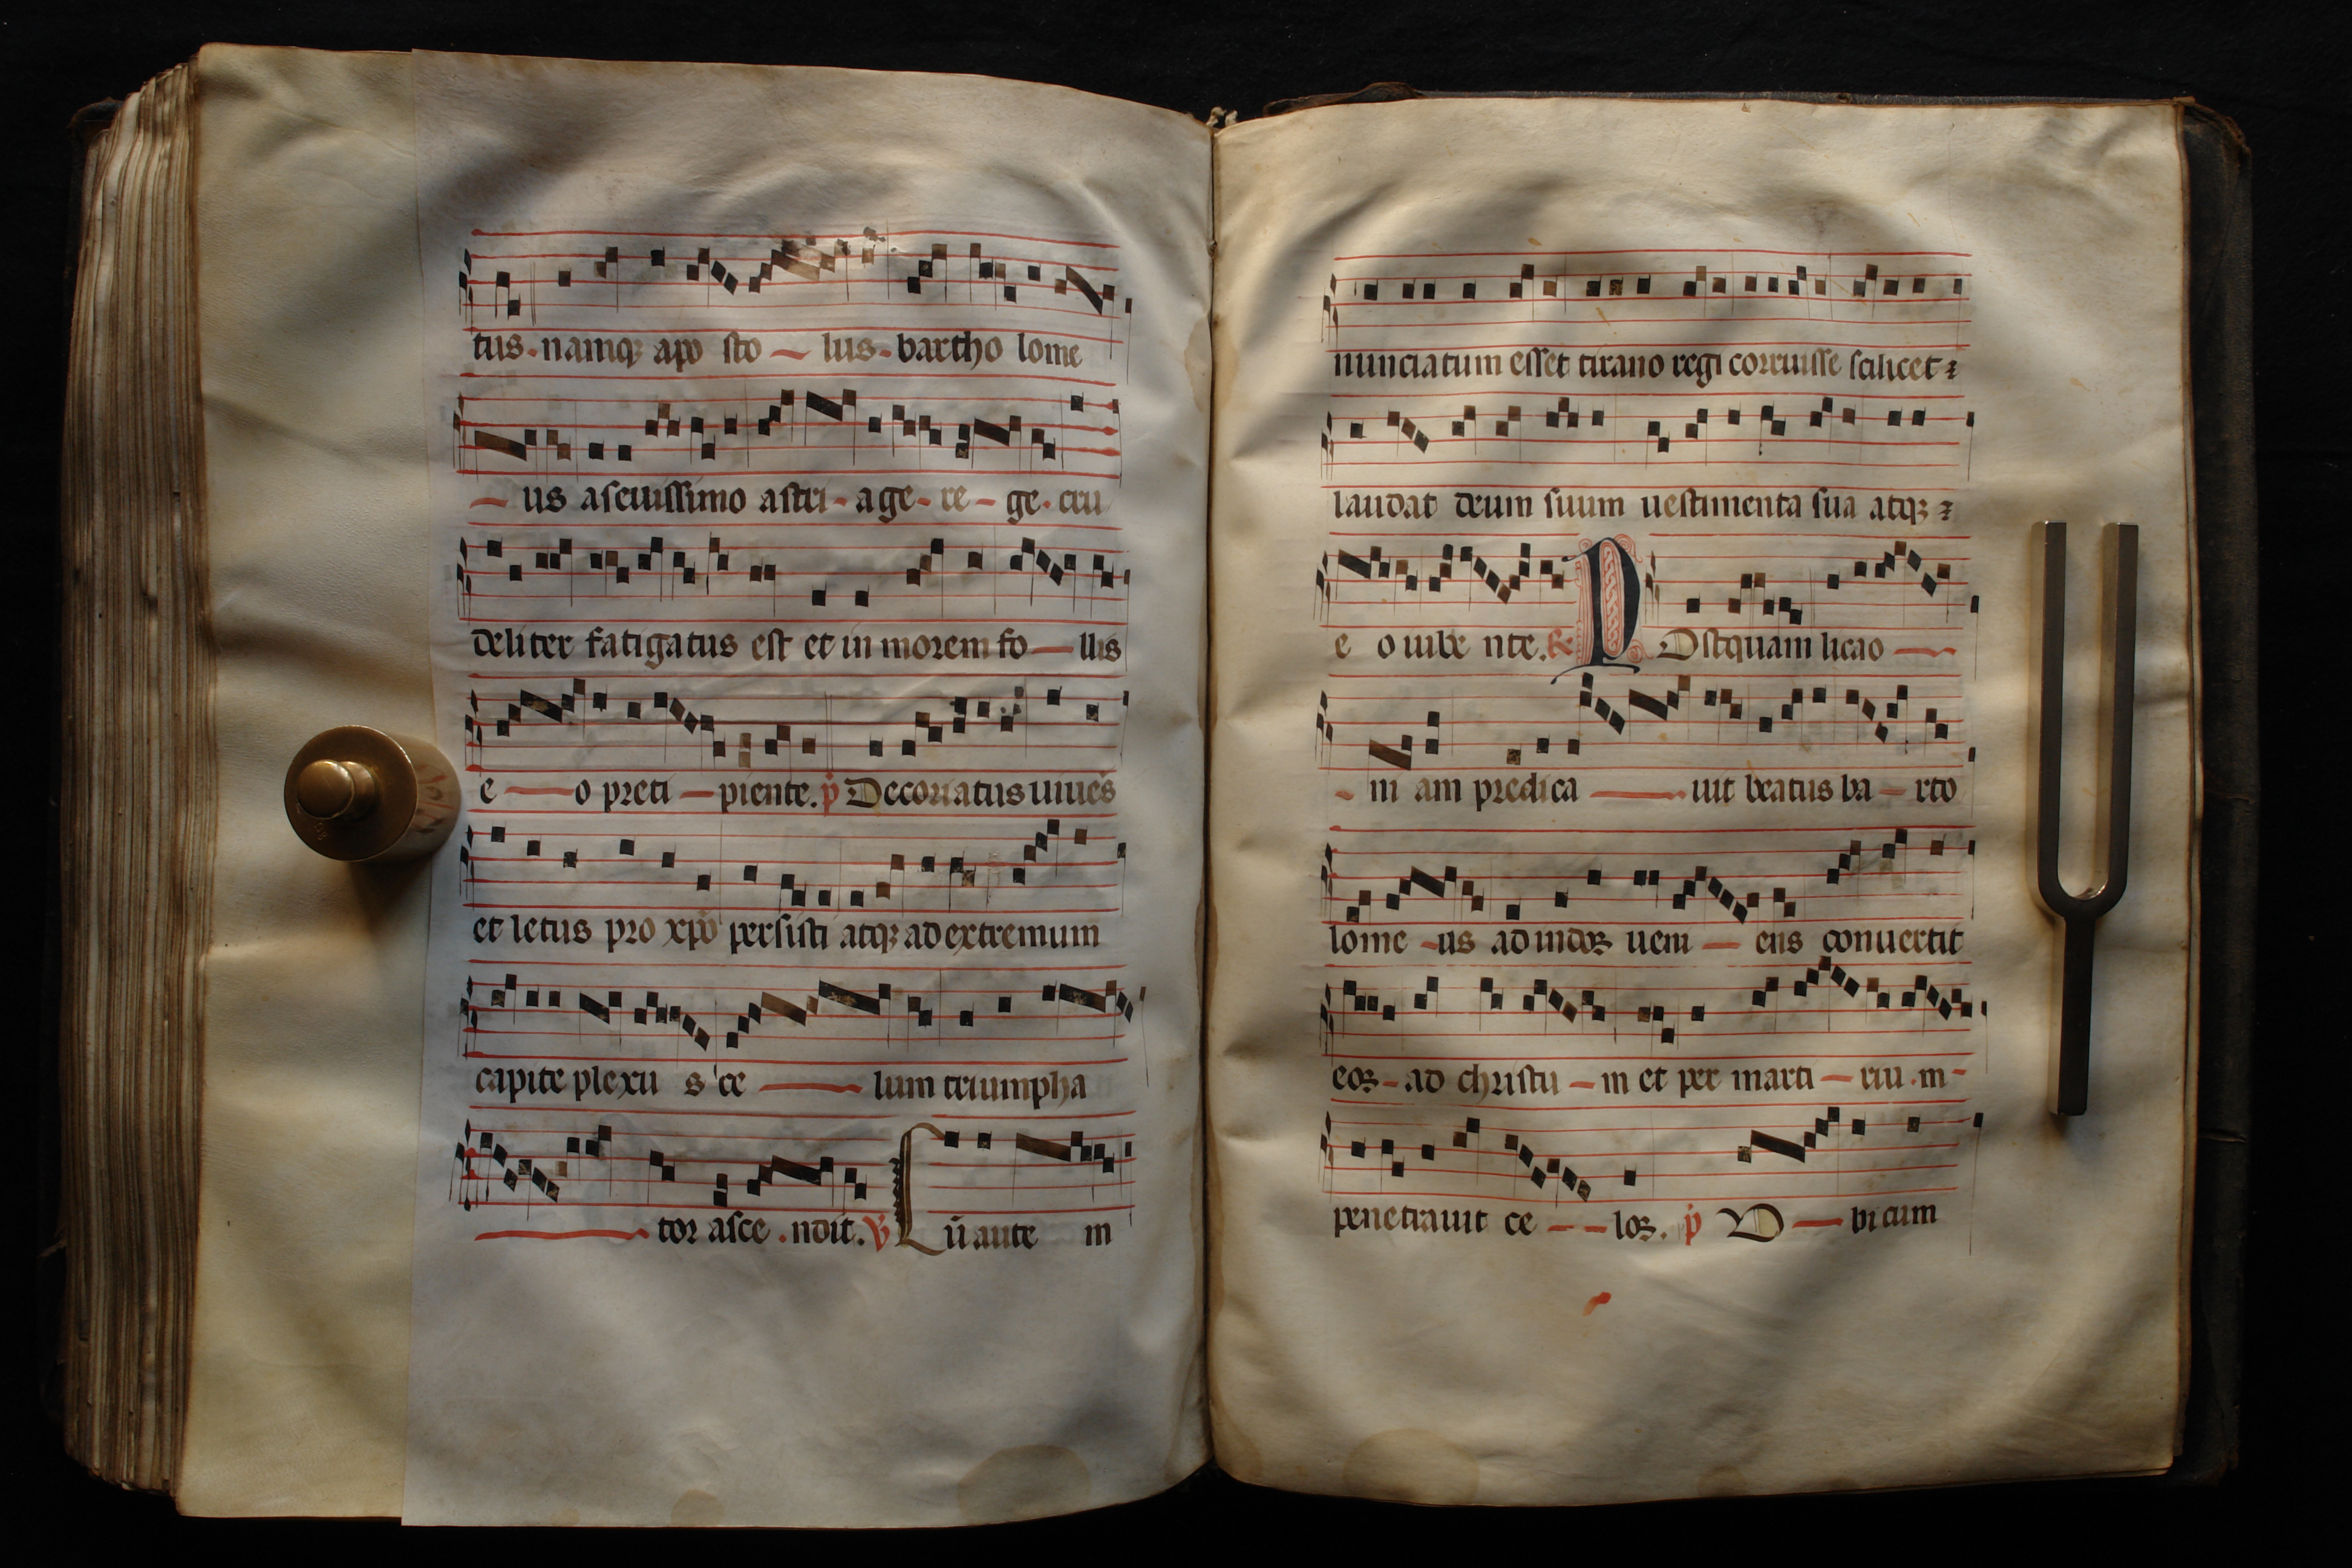 tus · namqꝫ apo sto — lus · bartho lome
— us aseuissimo astri - age - re - ge · cru
deliter fatigatus est et in morem fo — llis
e — o preci — piente. p̍ Decoriatus uiues
et letus pro xp̄o persisti atqꝫ ad extremum
capite plexu s ce — lum triumpha
— tor asce . ndit. ℣ Cū aute m
nunciatum esset tirano regi corruisse scilicet ⁊
laudat deum suum uestimenta sua atqꝫ ⁊
e o uibe nte. ℞ POstquam licao —
- ni am predica — uit beatus ba — rto
lome - us ad indoꝝ ueni — ens conuertit
eoꝝ - ad christu — m et per marti — riu . m -
penetrauit ce - - loꝝ . p̍